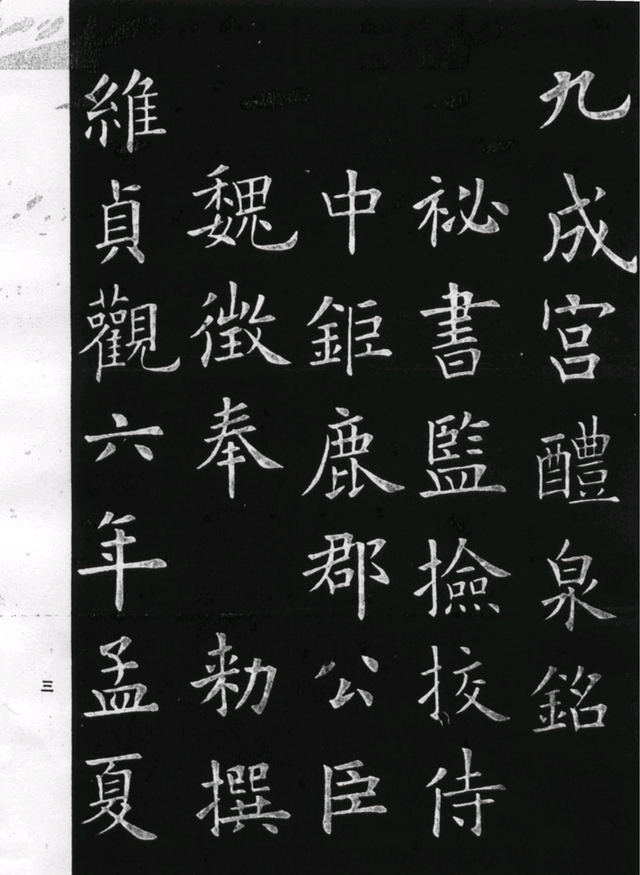 九成宮醴泉銘
祕書監撿挍侍
中鉅鹿郡公臣
魏徵奉勑撰
維貞觀六年孟夏
三